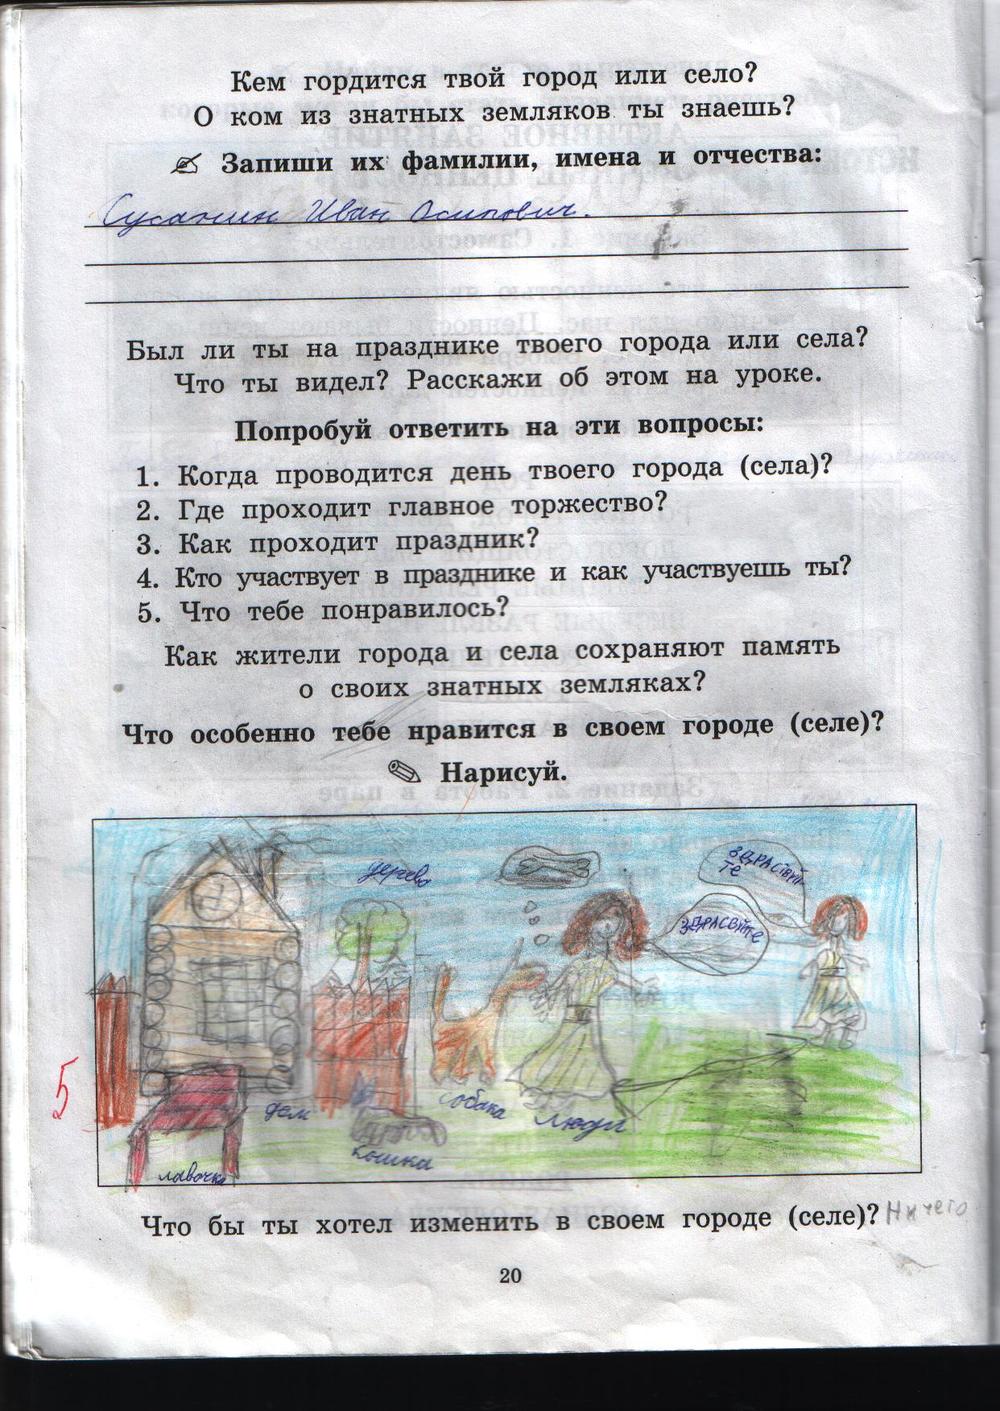 Кем гордится твой город или село?
О ком из знатных земляков ты знаешь?
Запиши их фамилии, имена и отчества:
Сусанин Иван Осипович.
Был ли ты на празднике твоего города или села?
Что ты видел? Расскажи об этом на уроке.
Попробуй ответить на эти вопросы:
1. Когда проводится день твоего города (села)?
2. Где проходит главное торжество?
3. Как проходит праздник?
4. Кто участвует в празднике и как участвуешь ты?
5. Что тебе понравилось?
Как жители города и села сохраняют память
о своих знатных земляках?
Что особенно тебе нравится в своем городе (селе)?
Нарисуй.
дерево
ЗДРАСВУЙ
ТЕ
ЗДРАСВУЙТЕ
5
дом
собака
люди
кошка
лавочка
Что бы ты хотел изменить в своем городе (селе)? Ничего
20